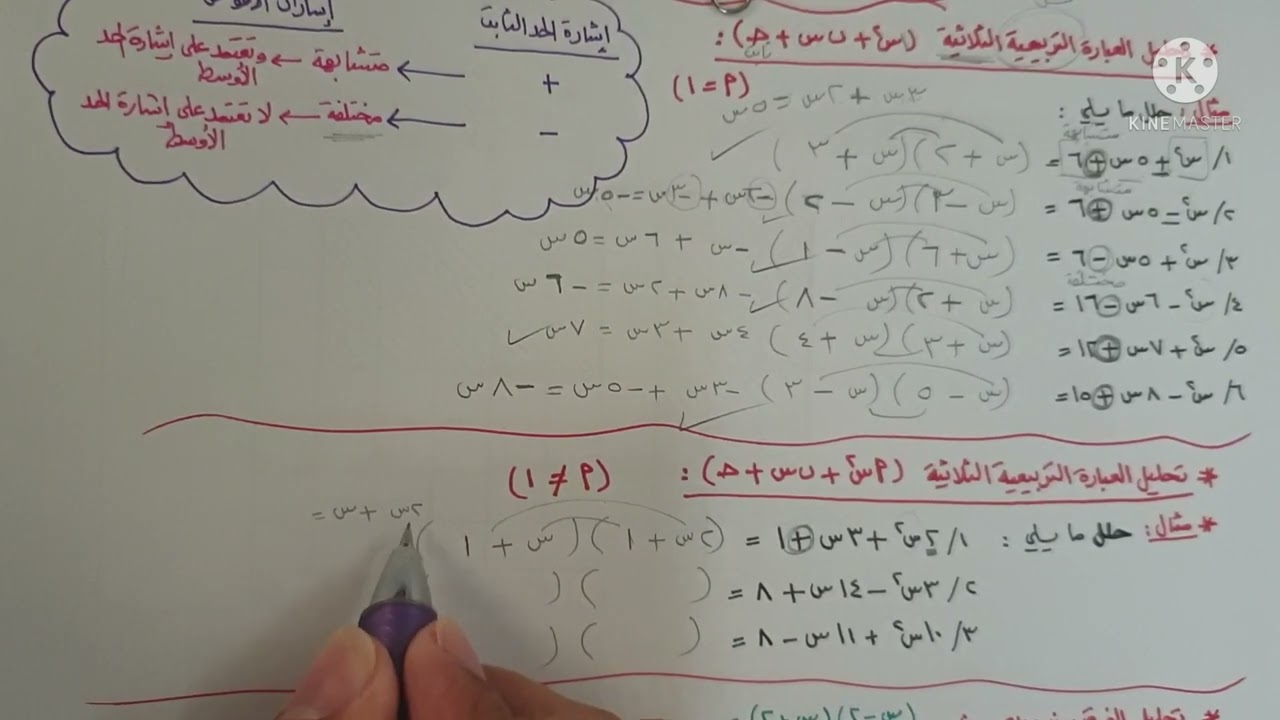 * تحليل العبارة التربيعية الثلاثية (س² + ب س + جـ) :
ثابت
(P = 1)
مثال : حلل ما يلي :
٣س + ٢س = ٥س
متشابهة
١/ س² + ٥س + ٦ = (س + ٢) (س + ٣)
متشابهة
٢/ س² - ٥س + ٦ = (س - ٣) (س - ٢) -٢س + -٣س = -٥س
٣/ س² + ٥س - ٦ = (س + ٦) (س - ١) -س + ٦س = ٥س
مختلفة
٤/ س² - ٦س - ١٦ = (س + ٢) (س - ٨) -٨س + ٢س = -٦س
٥/ س² + ٧س + ١٢ = (س + ٣) (س + ٤) ٤س + ٣س = ٧س
٦/ س² - ٨س + ١٥ = (س - ٥) (س - ٣) -٣س + -٥س = -٨س
إشارة الحد الثابت
+ ← متشابهة ← وتعتمد على إشارة الحد الأوسط
- ← مختلفة ← لا تعتمد على إشارة الحد الأوسط
* تحليل العبارة التربيعية الثلاثية (Pس² + ب س + جـ) : (P ≠ 1)
* مثال : حلل ما يلي :
١/ ٢س² + ٣س + ١ = (٢س + ١) (س + ١)
٢س + س =
٢/ ٣س² - ١٤س + ٨ = ( ) (
٣/ ١٠س² + ١١س - ٨ = ( ) (
(س-٢)(س+٢) =
KINEMASTER
K